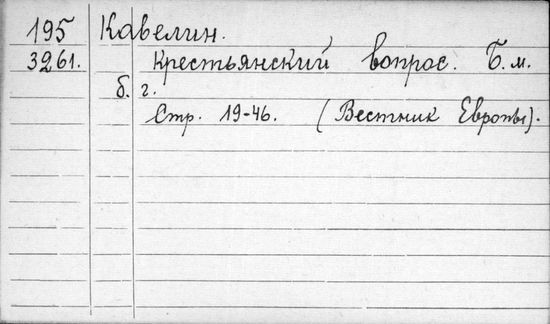 195 Кавелин.
3261. Крестьянский вопрос. Б.м.
б. г.
Стр. 19-46. (Вестник Европы).